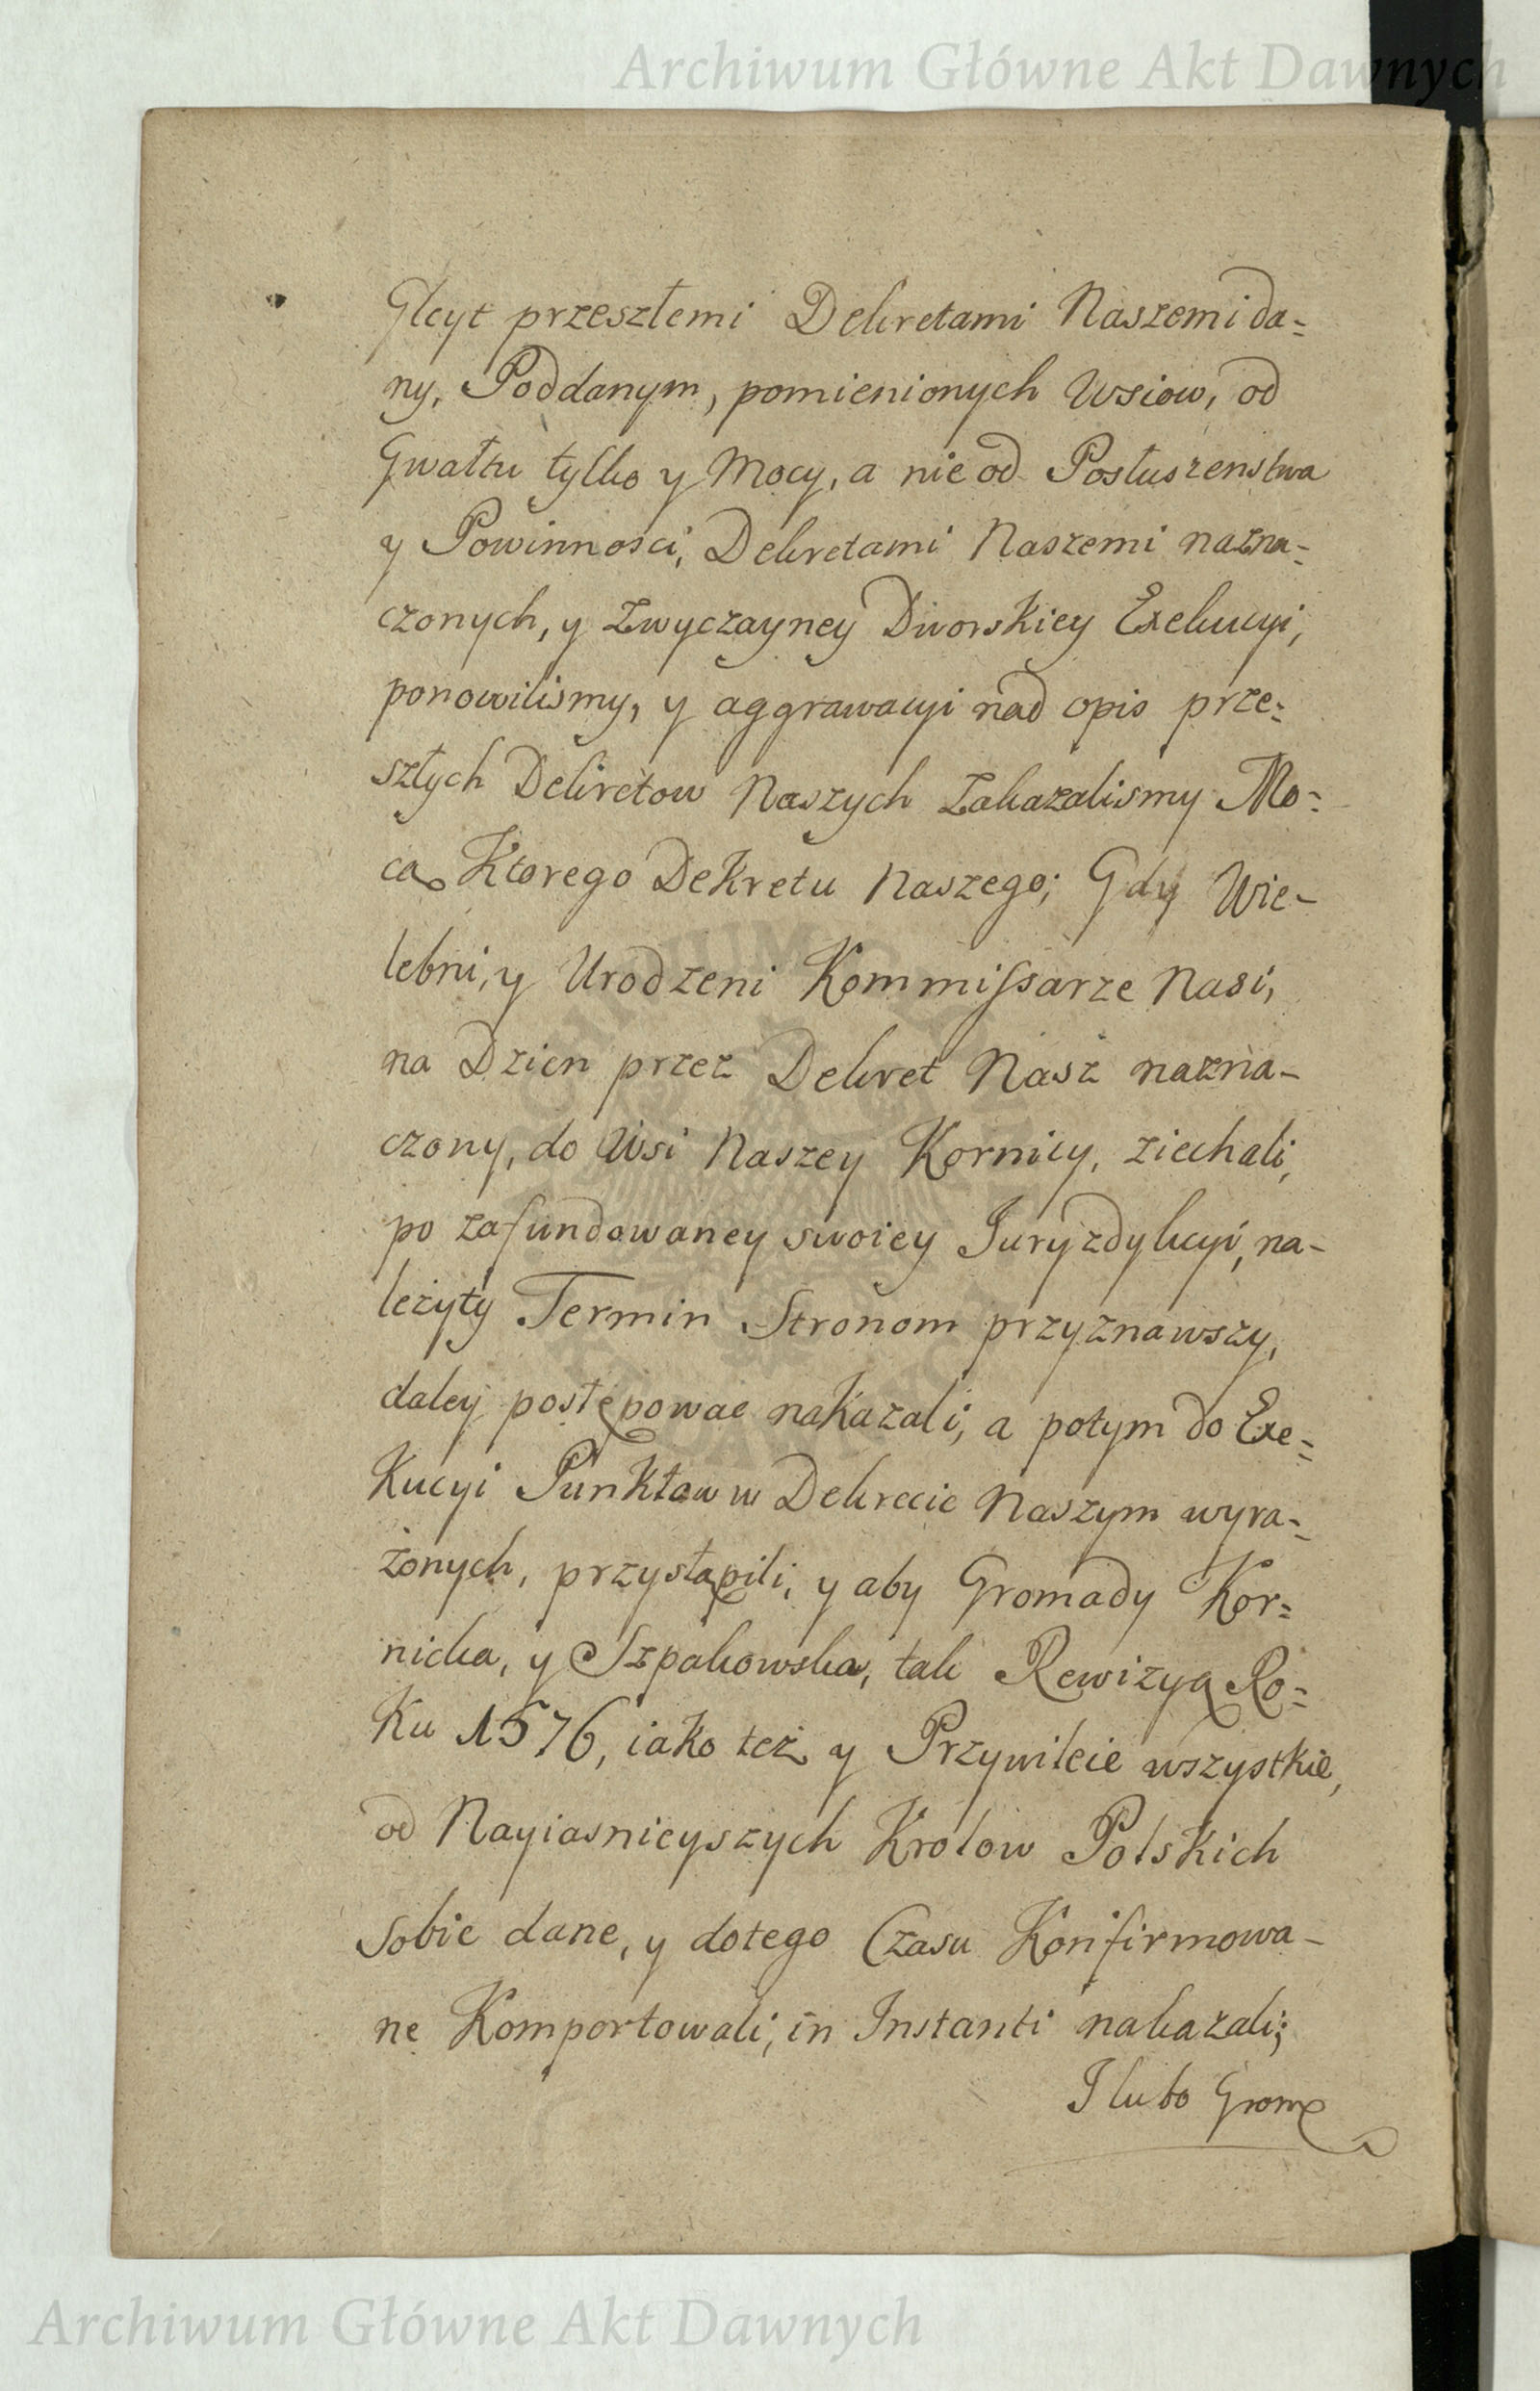 Archiwum Główne Akt Dawnych
Gleyt przeszłemi Dekretami Naszemi da=
ny, Poddanym, pomienionych Wsiow, od
Gwałtu tylko y Mocy, a nie od Posłuszenstwa
y Powinnosci, Dekretami Naszemi nazna=
czonych, y Zwyczayney Dworskiey Exekucyi,
ponowilismy, y aggrawacyi nad opis prze=
szłych Dekretow Naszych Zakazalismy Mo=
cą Ktorego Dekretu Naszego; Gdy Wie-
lebni, y Urodzeni Kommissarze Nasi,
na Dzien przez Dekret Nasz nazna-
czony, do Wsi Naszey Kornicy, ziechali,
po zafundowaney swoiey Juryzdykcyi, na-
leżyty Termin Stronom przyznawszy,
daley postępowac nakazali, a potym do Exe=
Kucyi Punktow w Dekrecie Naszym wyra=
żonych, przystąpili, y aby Gromady Kor=
nicka, y Szpakowska, tak Rewizyą Ro=
Ku 1576, iako też y Przywileie wszystkie,
od Nayiasnieyszych Krolow Polskich
sobie dane, y dotego Czasu Konfirmowa-
ne Komportowali, in Instanti nakazali;
I lubo Grom
Archiwum Główne Akt Dawnych